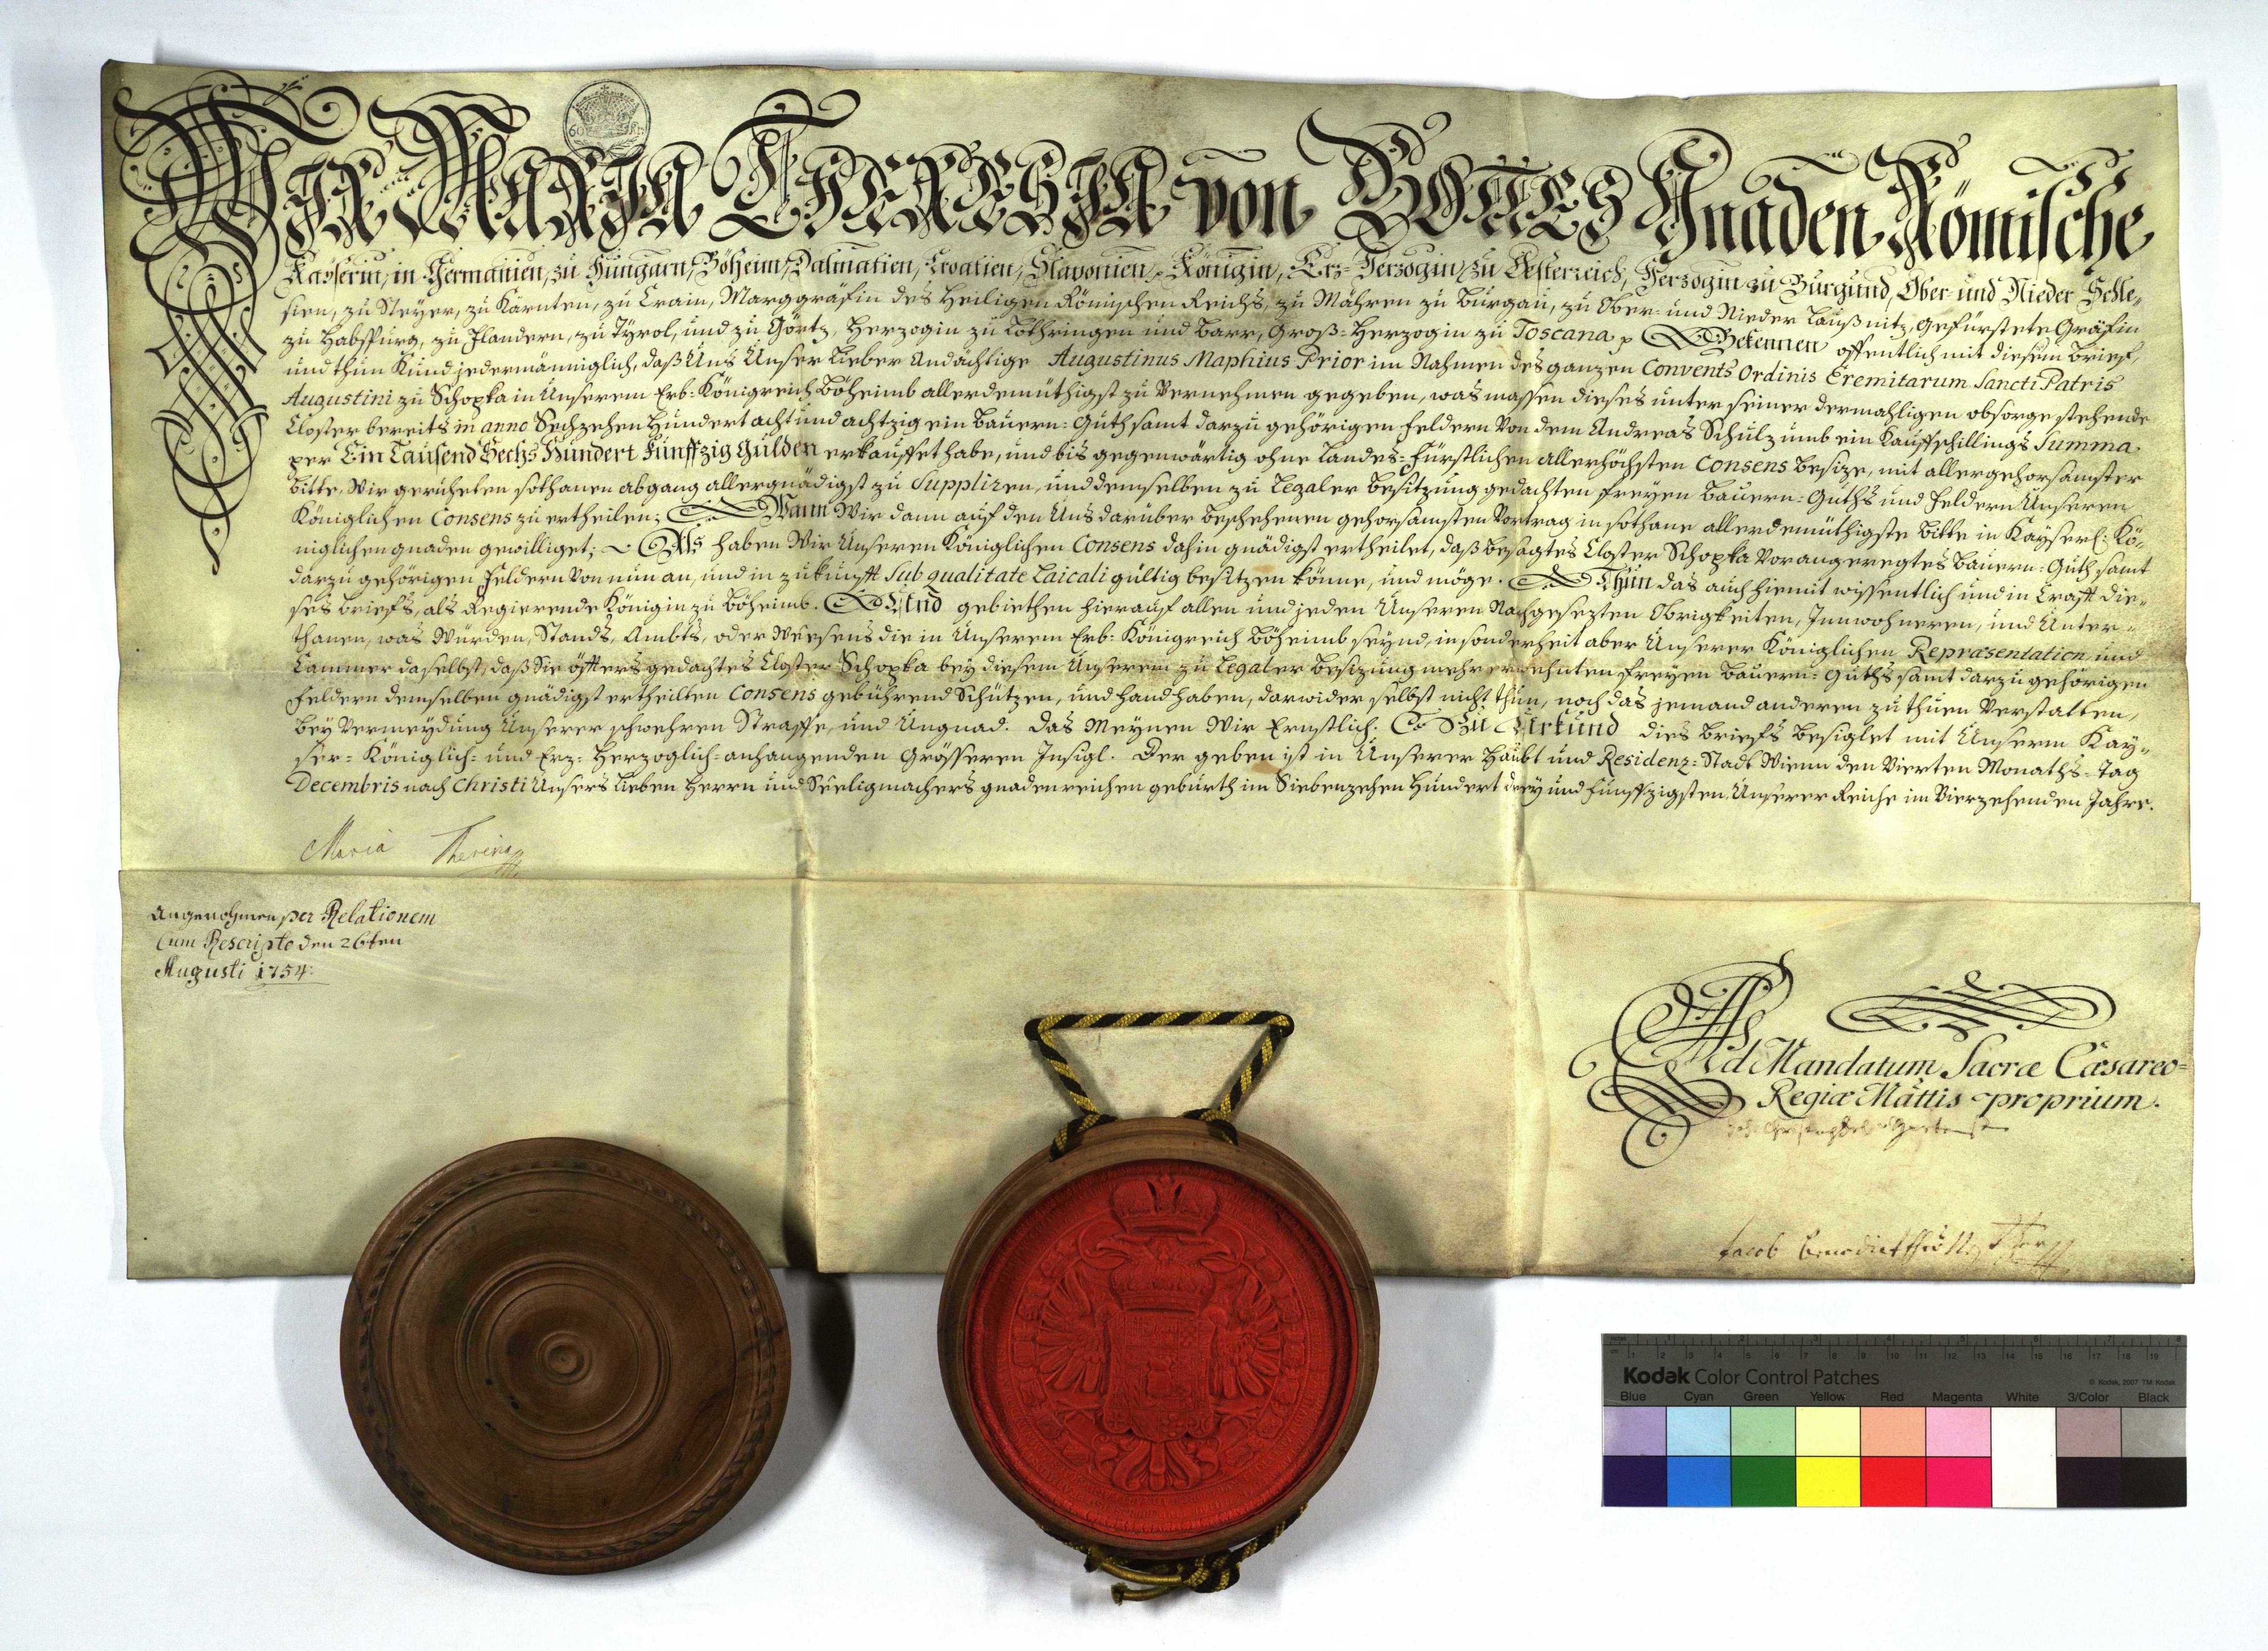 60 Kr
WIR MARIA THERESIA von GOTTES Gnaden Römische
Kayserin, in Germanien, zu Hungarn, Böheim, Dalmatien, Croatien, Slavonien, Königin, Erz-Herzogin zu Österreich, Herzogin zu Burgund, Ober- und Nieder Schle-
sien, zu Steyer, zu Kärnten, zu Crain, Marggräfin des Heiligen Römischen Reichs, zu Mähren zu Burgau, zu Ober- und Nieder Laußnitz, Gefürstete Gräfin
zu Habspurg, zu Flandern, zu Tyrol, und zu Görtz, Herzogin zu Lothringen und Barr, Groß-Herzogin zu Toscana p Bekennen offentlich mit diesem Brief,
und thun Kund jedermänniglich, daß Uns Unser Lieber Andächtige Augustinus Maphius Prior im Nahmen des ganzen Convents Ordinis Eremitarum Sancti Patris
Augustini zu Schopka in Unserem Erb-Königreich Böheimb allerdemüthigst zu Vernehmen gegeben, was massen dieses unter seiner dermahligen obsorge stehende
Closter bereits in anno Sechzehen Hundert acht und achtzig ein Bauern-Guth samt darzu gehörigen Feldern Von dem Andreas Schulz umb ein Kauffschillings Summa
per Ein Tausend Sechs Hundert Fünffzig Gulden erkauffet habe, und bis gegenwärtig ohne Landes-Fürstlichen allerhöchsten Consens Besize, mit allergehorsamster
Bitte, Wir geruheten sothanen abgang allergnädigst zu Suppliren, und demselben zu Legaler Besitzung gedachten freyen Bauern-Guths und Feldern Unseren
Königlichen Consens zu ertheilen; Wann Wir dann auf den Uns darüber Beschehenen gehorsamsten Vortrag in sothane allerdemüthigste Bitte in Kayserl: Kö-
niglichen gnaden gewilliget; Als haben Wir Unseren Königlichen Consens dahin gnädigst ertheilet, daß Besagtes Closter Schopka Vorangeregtes Bauern-Guth samt
darzu gehörigen Feldern Von nun an, und in zukunfft Sub qualitate Laicali gültig besitzen könne, und möge. Thun das auch hiemit wissentlich und in Crafft die-
ses Briefs, als Regierende Königin zu Böheimb. Und gebiethen hierauf allen und jeden Unseren Nachgesezten Obrigkeiten, Innwohneren, und Unter-
thanen, was Würden, Stands, Ambts, oder Weesens die in Unserem Erb-Königreich Böheimb seynd, in sonderheit aber Unserer Königlichen Repræsentation und
Cammer daselbst, daß Sie öffters gedachtes Closter Schopka bey diesem Unserem zu Legaler Besizung mehr erwehnten freyen Bauern-Guths samt darzu gehörigen
Feldern demselben gnädigst ertheilten Consens gebührend Schützen, und handhaben, darwider selbst nicht thun, noch das jemand anderen zu thuen Verstatten,
Bey Vermeydung Unserer schwehren Straffe, und Ungnad. Das Meynen Wir Ernstlich. Zu Urkund dies Briefs Besiglet mit Unserm Kay-
ser- Königlich- und Erz-Herzoglich-anhangenden Grösseren Insigl. Der geben ist in Unserer Haubt und Residenz-Stadt Wienn den Vierten Monaths-Tag
Decembris nach Christi Unsers Lieben Herrn und Seeligmachers gnadenreichen geburth im Siebenzehen Hundert drey und Fünffzigsten, Unserer Reiche im Vierzehenden Jahre.
Maria Theresia
Angenohmen per Relationem
cum Rescripto den 26ten
Augusti 1754.
Ad Mandatum Sacræ Cæsareo-
Regiæ Mãttis proprium.
Kodak Color Control Patches
© Kodak, 2007 TM: Kodak
Blue Cyan Green Yellow Red Magenta White 3/Color Black